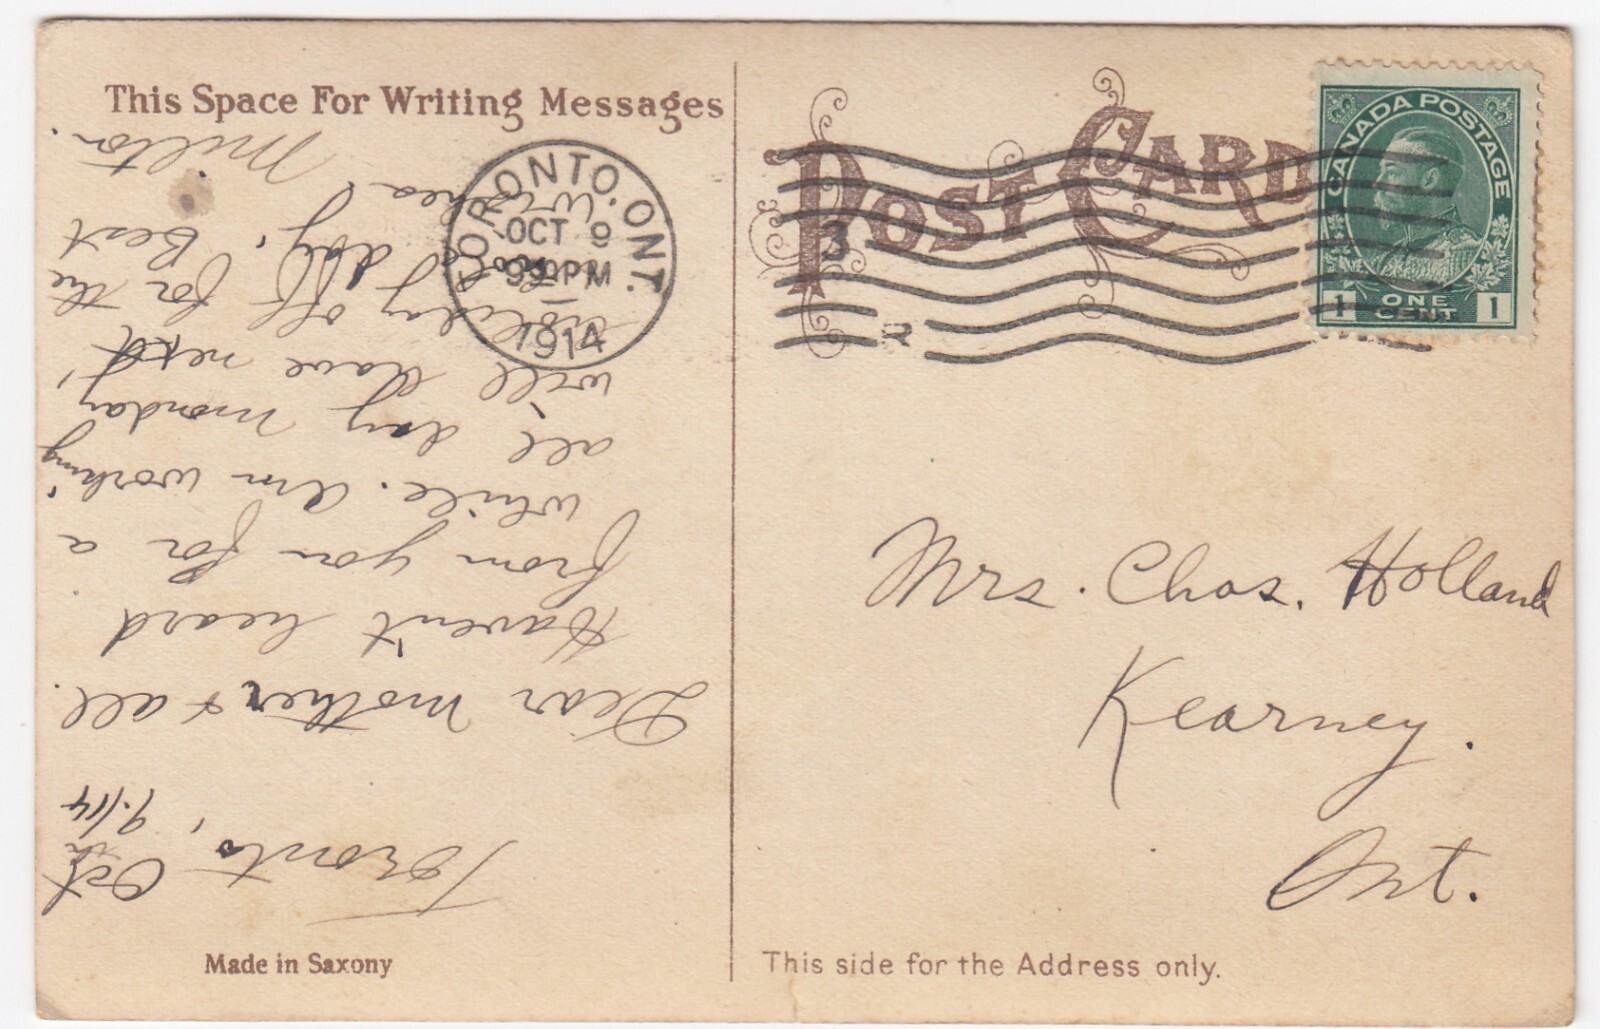 This Space For Writing Messages
POST CARD
CANADA POSTAGE
1 ONE CENT 1
TORONTO, ONT.
OCT 9
PM
1914
3
Toronto, Oct 9th/14
Dear Mother & all.
Haven't heard
from you for a
while. Am working
all day Monday,
will have next
off for the
day. Best
wishes
Milton.
Mrs. Chas. Holland
Kearney.
Ont.
Made in Saxony
This side for the Address only.